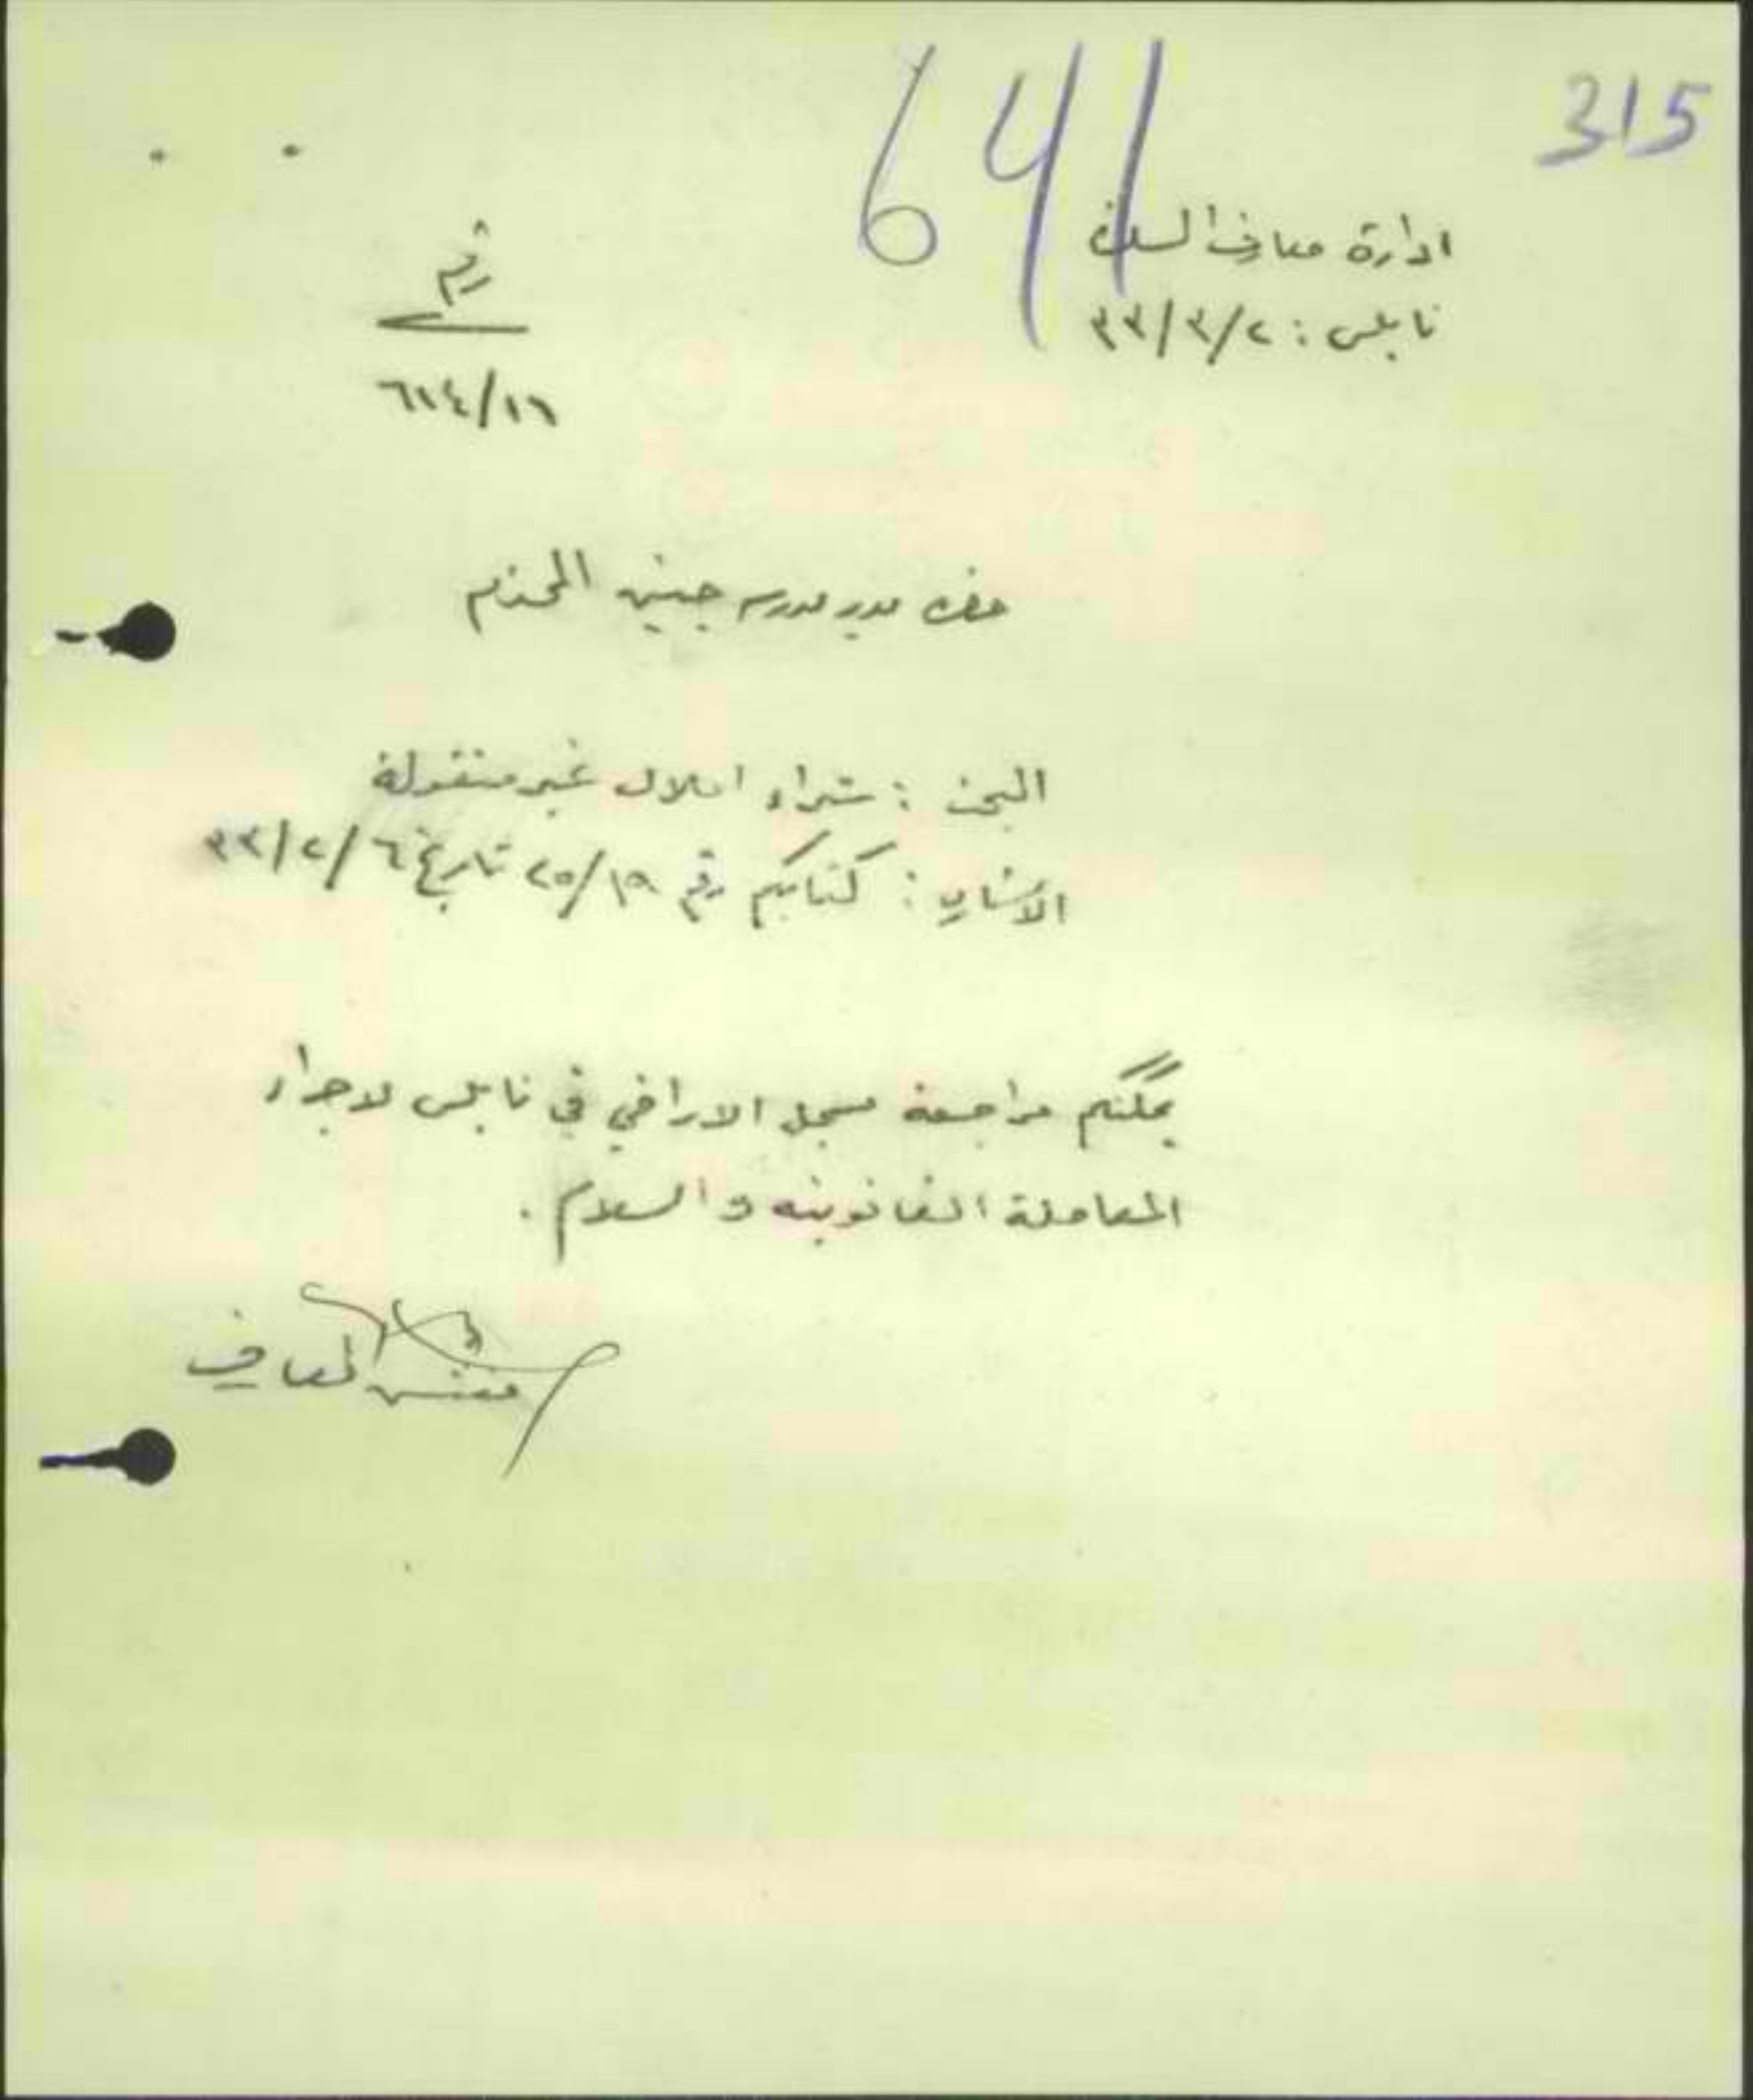 315
641
ادارة معارف السامرة
نابلس : ٢/٣/٣٣
رقم
٦١٤/١٦
حضرة مدير مدرسة جنين المحترم
البحث : شراء املاك غير منقولة
الاشارة : كتابكم رقم ٢٥/١٩ تاريخ ٦/٢/٣٣
يمكنكم مراجعة مسجل الاراضي في نابلس لاجراء
المعاملة القانونية والسلام .
مفتش المعارف